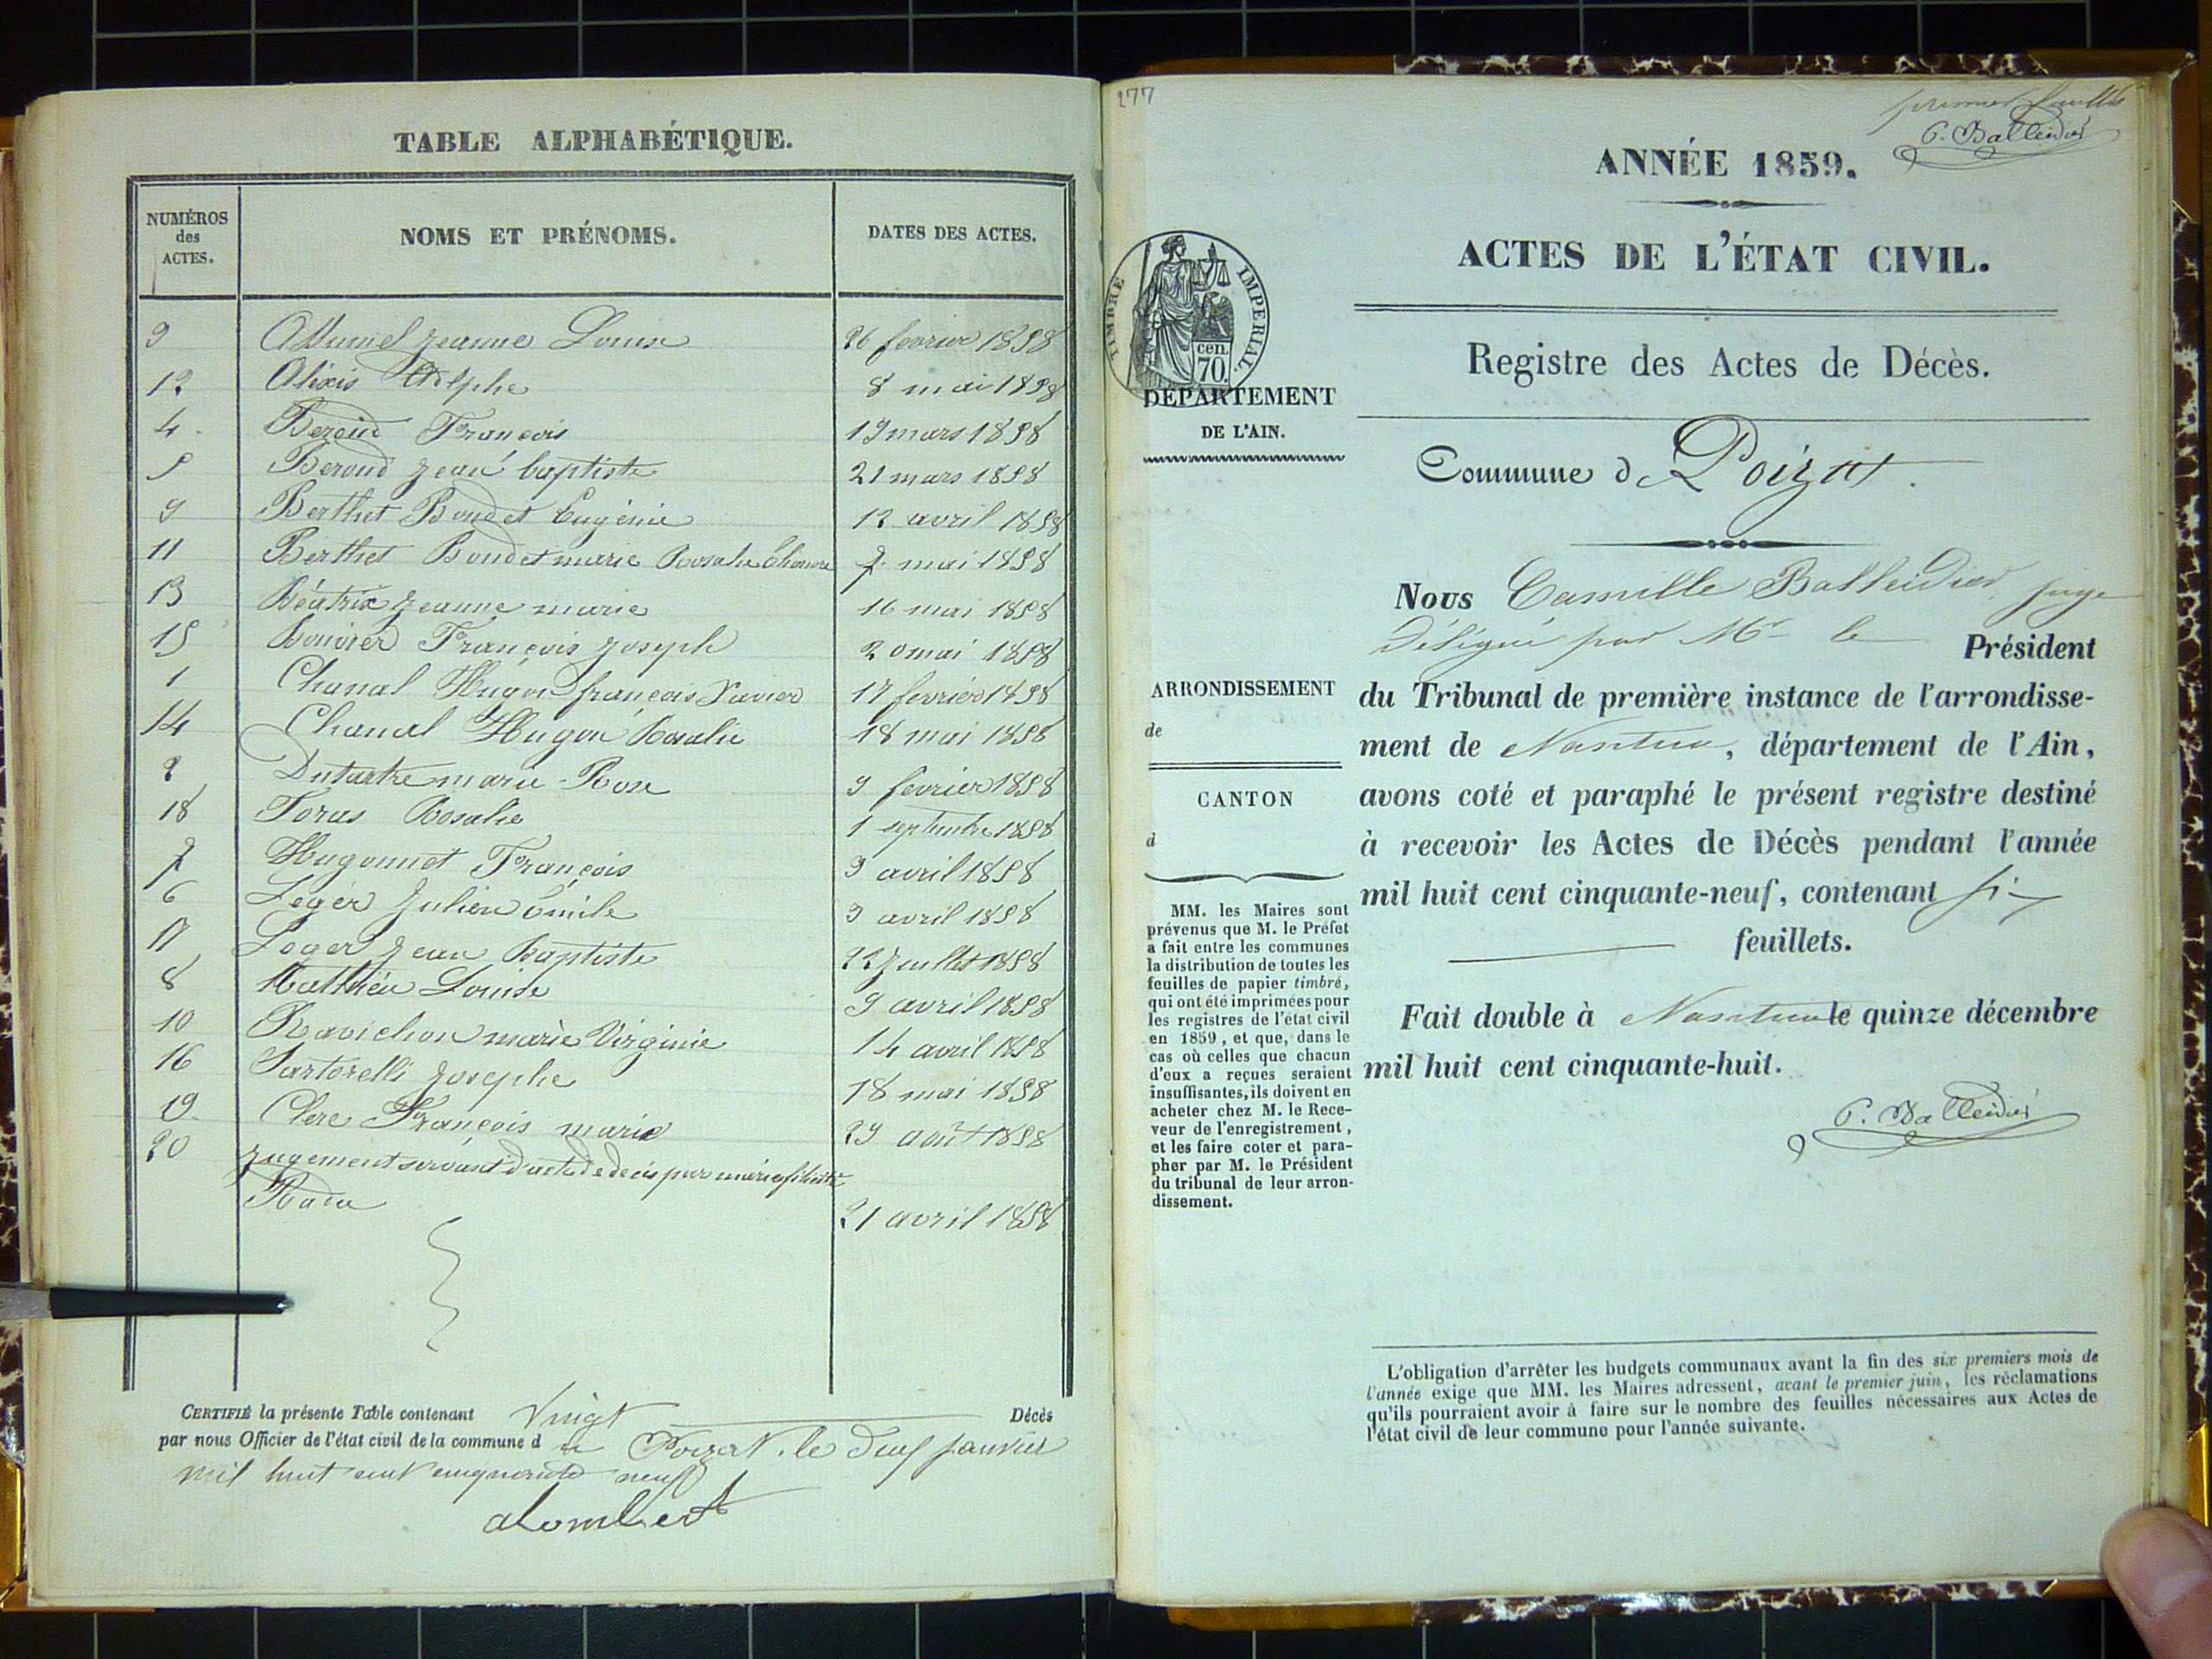 TABLE ALPHABÉTIQUE.
NUMÉROS des ACTES.
NOMS ET PRÉNOMS.
DATES DES ACTES.
3 Jeanne Louise 26 fevrier 1858
12 Alexis Adolphe 8 mai 1858
4 Beroud François 19 mars 1858
5 Beroud Jean baptiste 21 mars 1858
9 Berthet Bondet Eugénie 12 avril 1858
11 Berthet Bondet marie Rosalie 7 mai 1858
13 Béatrix Jeanne marie 16 mai 1858
15 Bouvier François Joseph 20 mai 1858
1 Chanal Hugon françois Xavier 17 fevrier 1858
14 Chanal Hugon Rosalie 18 mai 1858
2 Dutartre marie Rose 9 fevrier 1858
18 Rosalie 1 septembre 1858
7 Hugonnet François 3 avril 1858
6 Leger Julien Emile 3 avril 1858
17 Leger Jean Baptiste 22 Juillet 1858
8 Matthieu Louise 9 avril 1858
10 Ravichon marie Virginie 14 avril 1858
16 Sartorelli Josephe 18 mai 1858
19 Clere François marie 29 août 1858
20 Jugement servant d'acte de deces pour marie
21 avril 1858
CERTIFIÉ la présente Table contenant Vingt Décès
par nous Officier de l'état civil de la commune d u Poizat. le deux janvier
mil huit cent cinquante neuf
alombert
277
premier feuillet
C. Balleidier
ANNÉE 1859.
ACTES DE L'ÉTAT CIVIL.
Registre des Actes de Décès.
TIMBRE IMPERIAL.
cen. 70.
DÉPARTEMENT
DE L'AIN.
Commune d Poizat.
Nous Camille Balleidier, juge
Délégué par Mr le Président
du Tribunal de première instance de l'arrondisse-
ment de Nantua, département de l'Ain,
avons coté et paraphé le présent registre destiné
à recevoir les Actes de Décès pendant l'année
mil huit cent cinquante-neuf, contenant six
feuillets.
Fait double à Nantua le quinze décembre
mil huit cent cinquante-huit.
C. Balleidier
ARRONDISSEMENT
de
CANTON
d
MM. les Maires sont
prévenus que M. le Préfet
a fait entre les communes
la distribution de toutes les
feuilles de papier timbré,
qui ont été imprimées pour
les registres de l'état civil
en 1859, et que, dans le
cas où celles que chacun
d'eux a reçues seraient
insuffisantes, ils doivent en
acheter chez M. le Rece-
veur de l'enregistrement,
et les faire coter et para-
pher par M. le Président
du tribunal de leur arron-
dissement.
L'obligation d'arrêter les budgets communaux avant la fin des six premiers mois de
l'année exige que MM. les Maires adressent, avant le premier juin, les réclamations
qu'ils pourraient avoir à faire sur le nombre des feuilles nécessaires aux Actes de
l'état civil de leur commune pour l'année suivante.